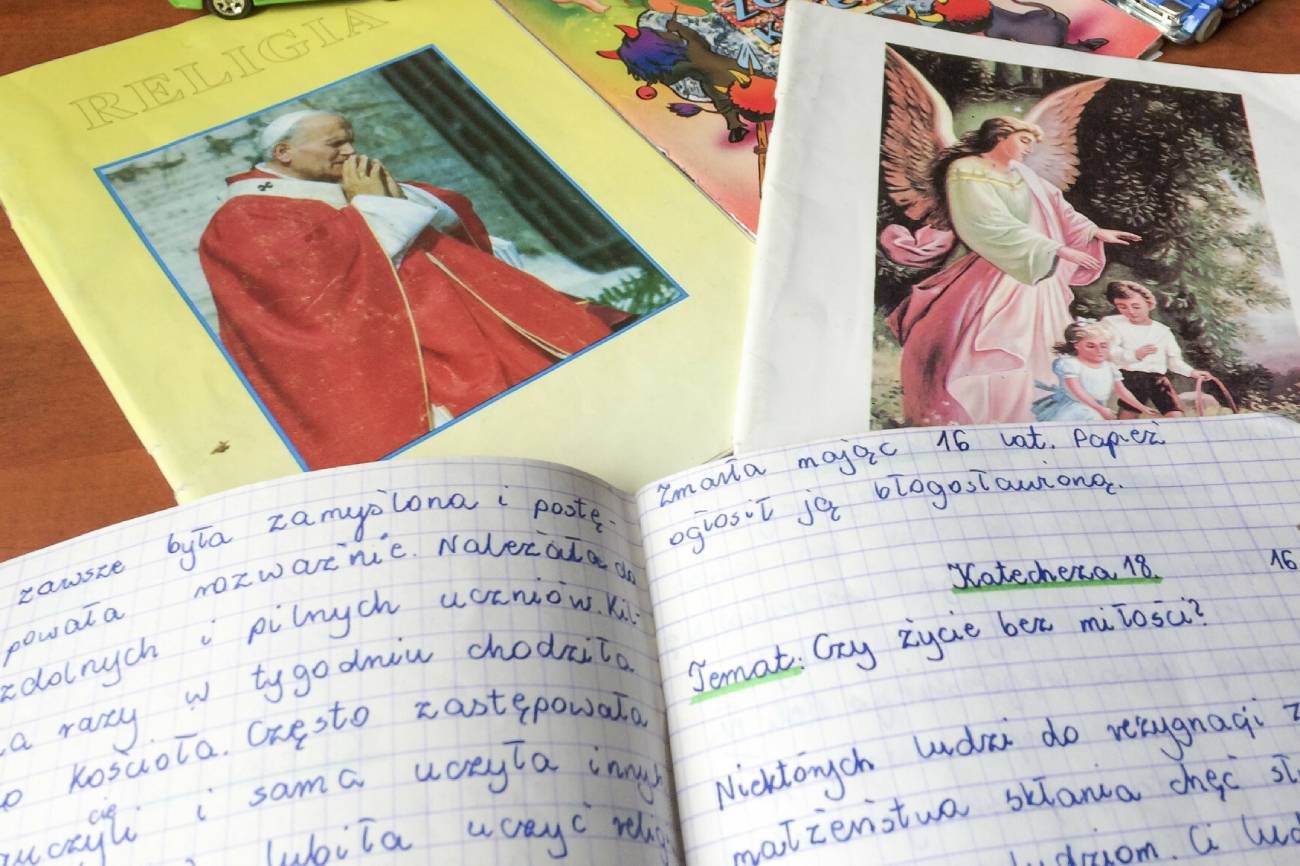 RELIGIA
zawsze była zamyślona i postę-
powała rozważnie. Należała do
zdolnych i pilnych uczniów. Kil-
razy w tygodniu chodziła
kościoła. Często zastępowała
i sama uczyła innych
się
lubiła uczyć
Zmarła mając 16 lat. Papież
ogłosił ją błogosławioną.
Katecheza 18. 16
Temat. Czy życie bez miłości?
Niektórych ludzi do rezygnacji z
małżeństwa skłania chęć